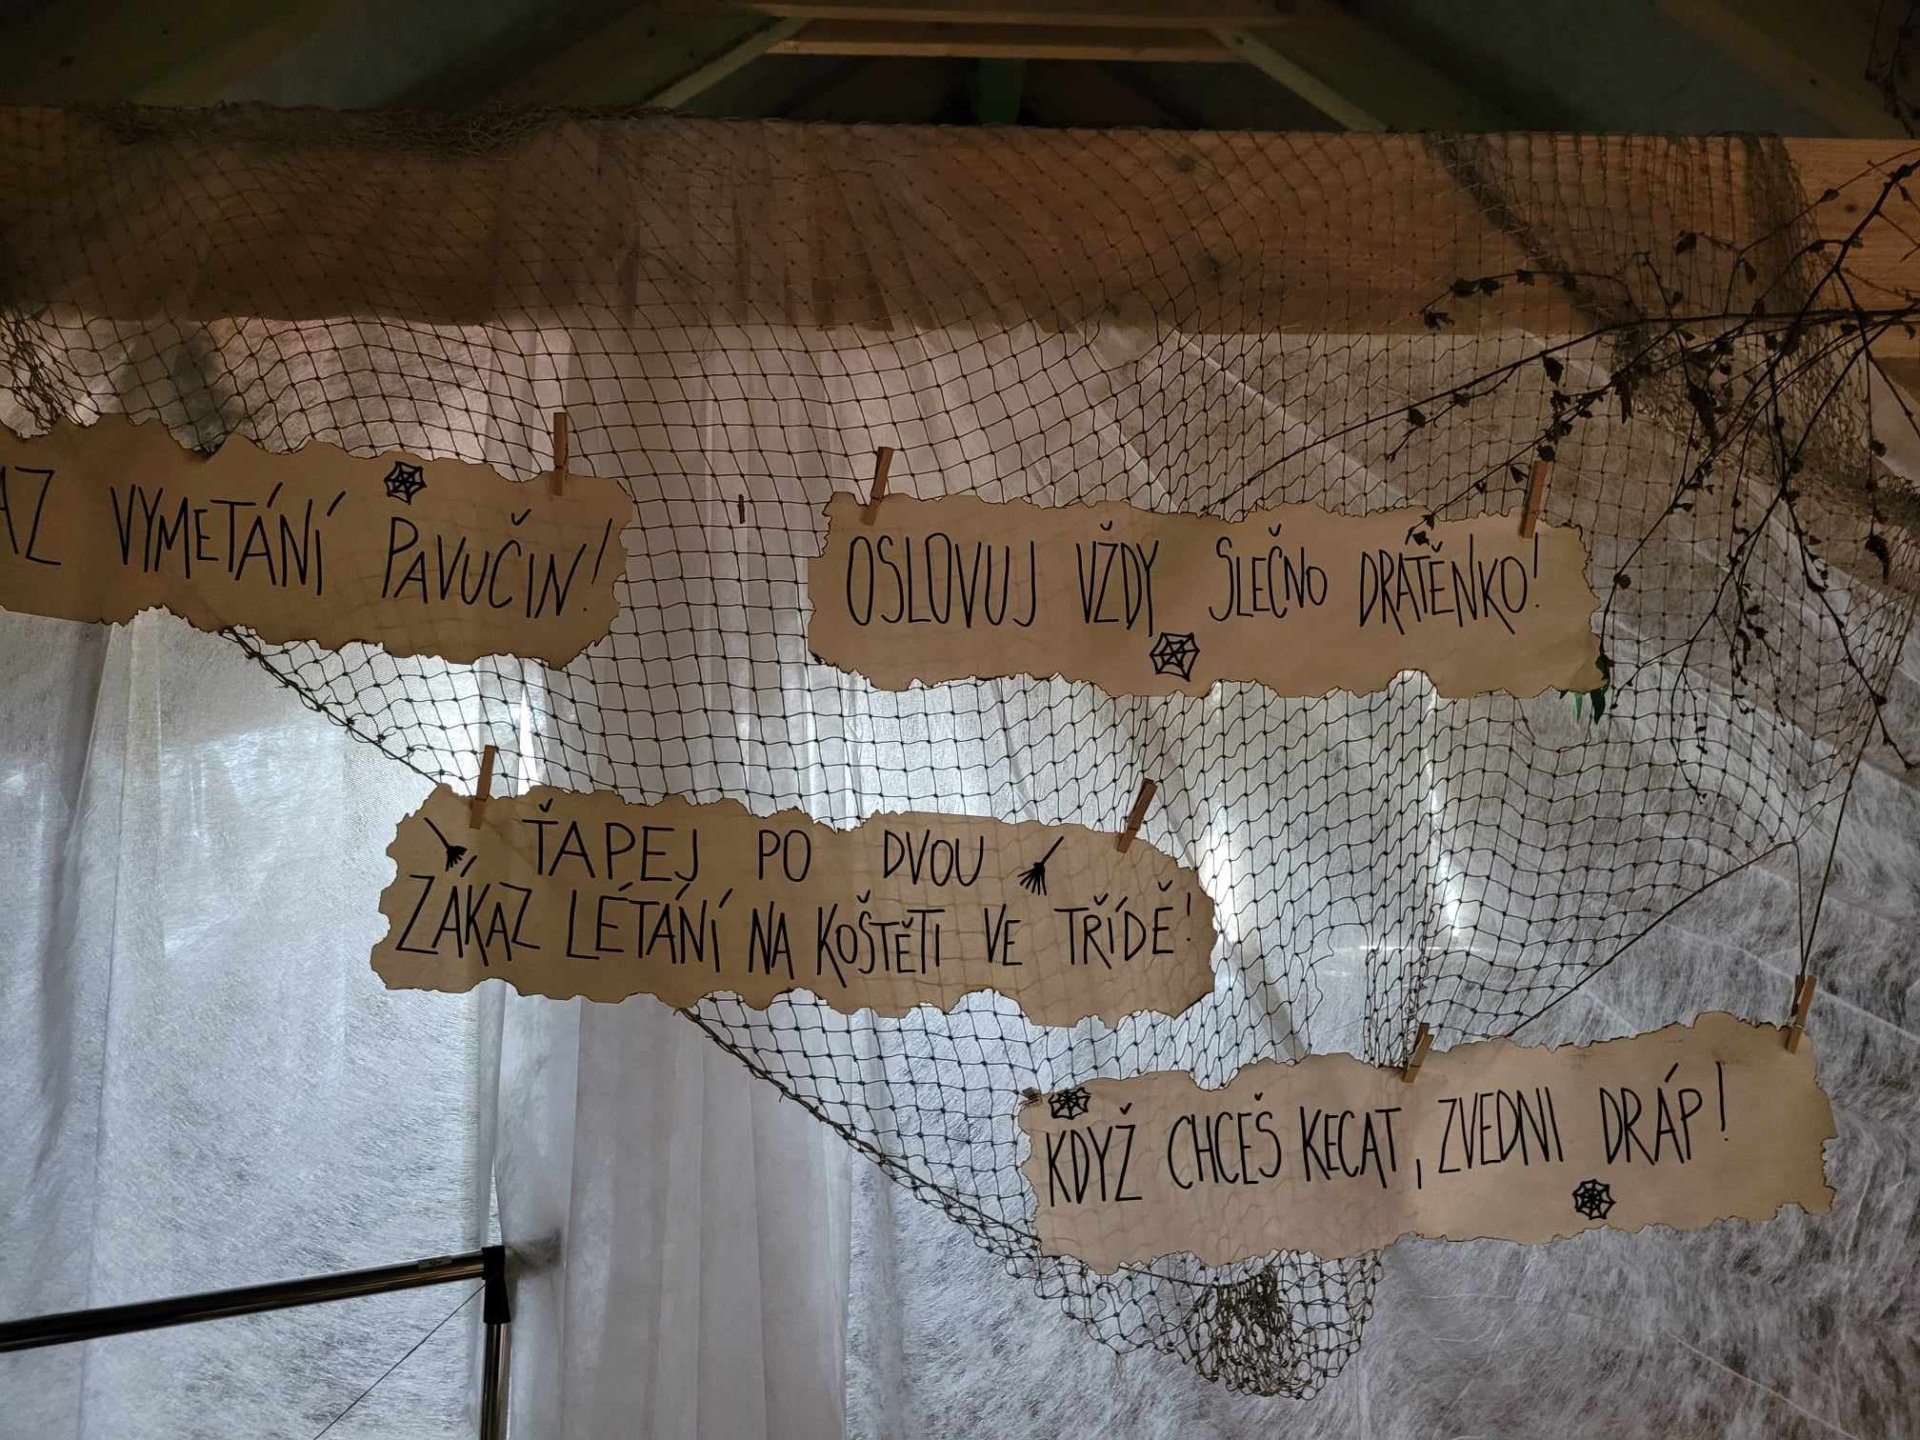 AZ VYMETÁNÍ PAVUČIN!
OSLOVUJ VŽDY SLEČNO DRÁTĚNKO!
ŤAPEJ PO DVOU
ZÁKAZ LÉTÁNÍ NA KOŠTĚTI VE TŘÍDĚ!
KDYŽ CHCEŠ KECAT, ZVEDNI DRÁP!